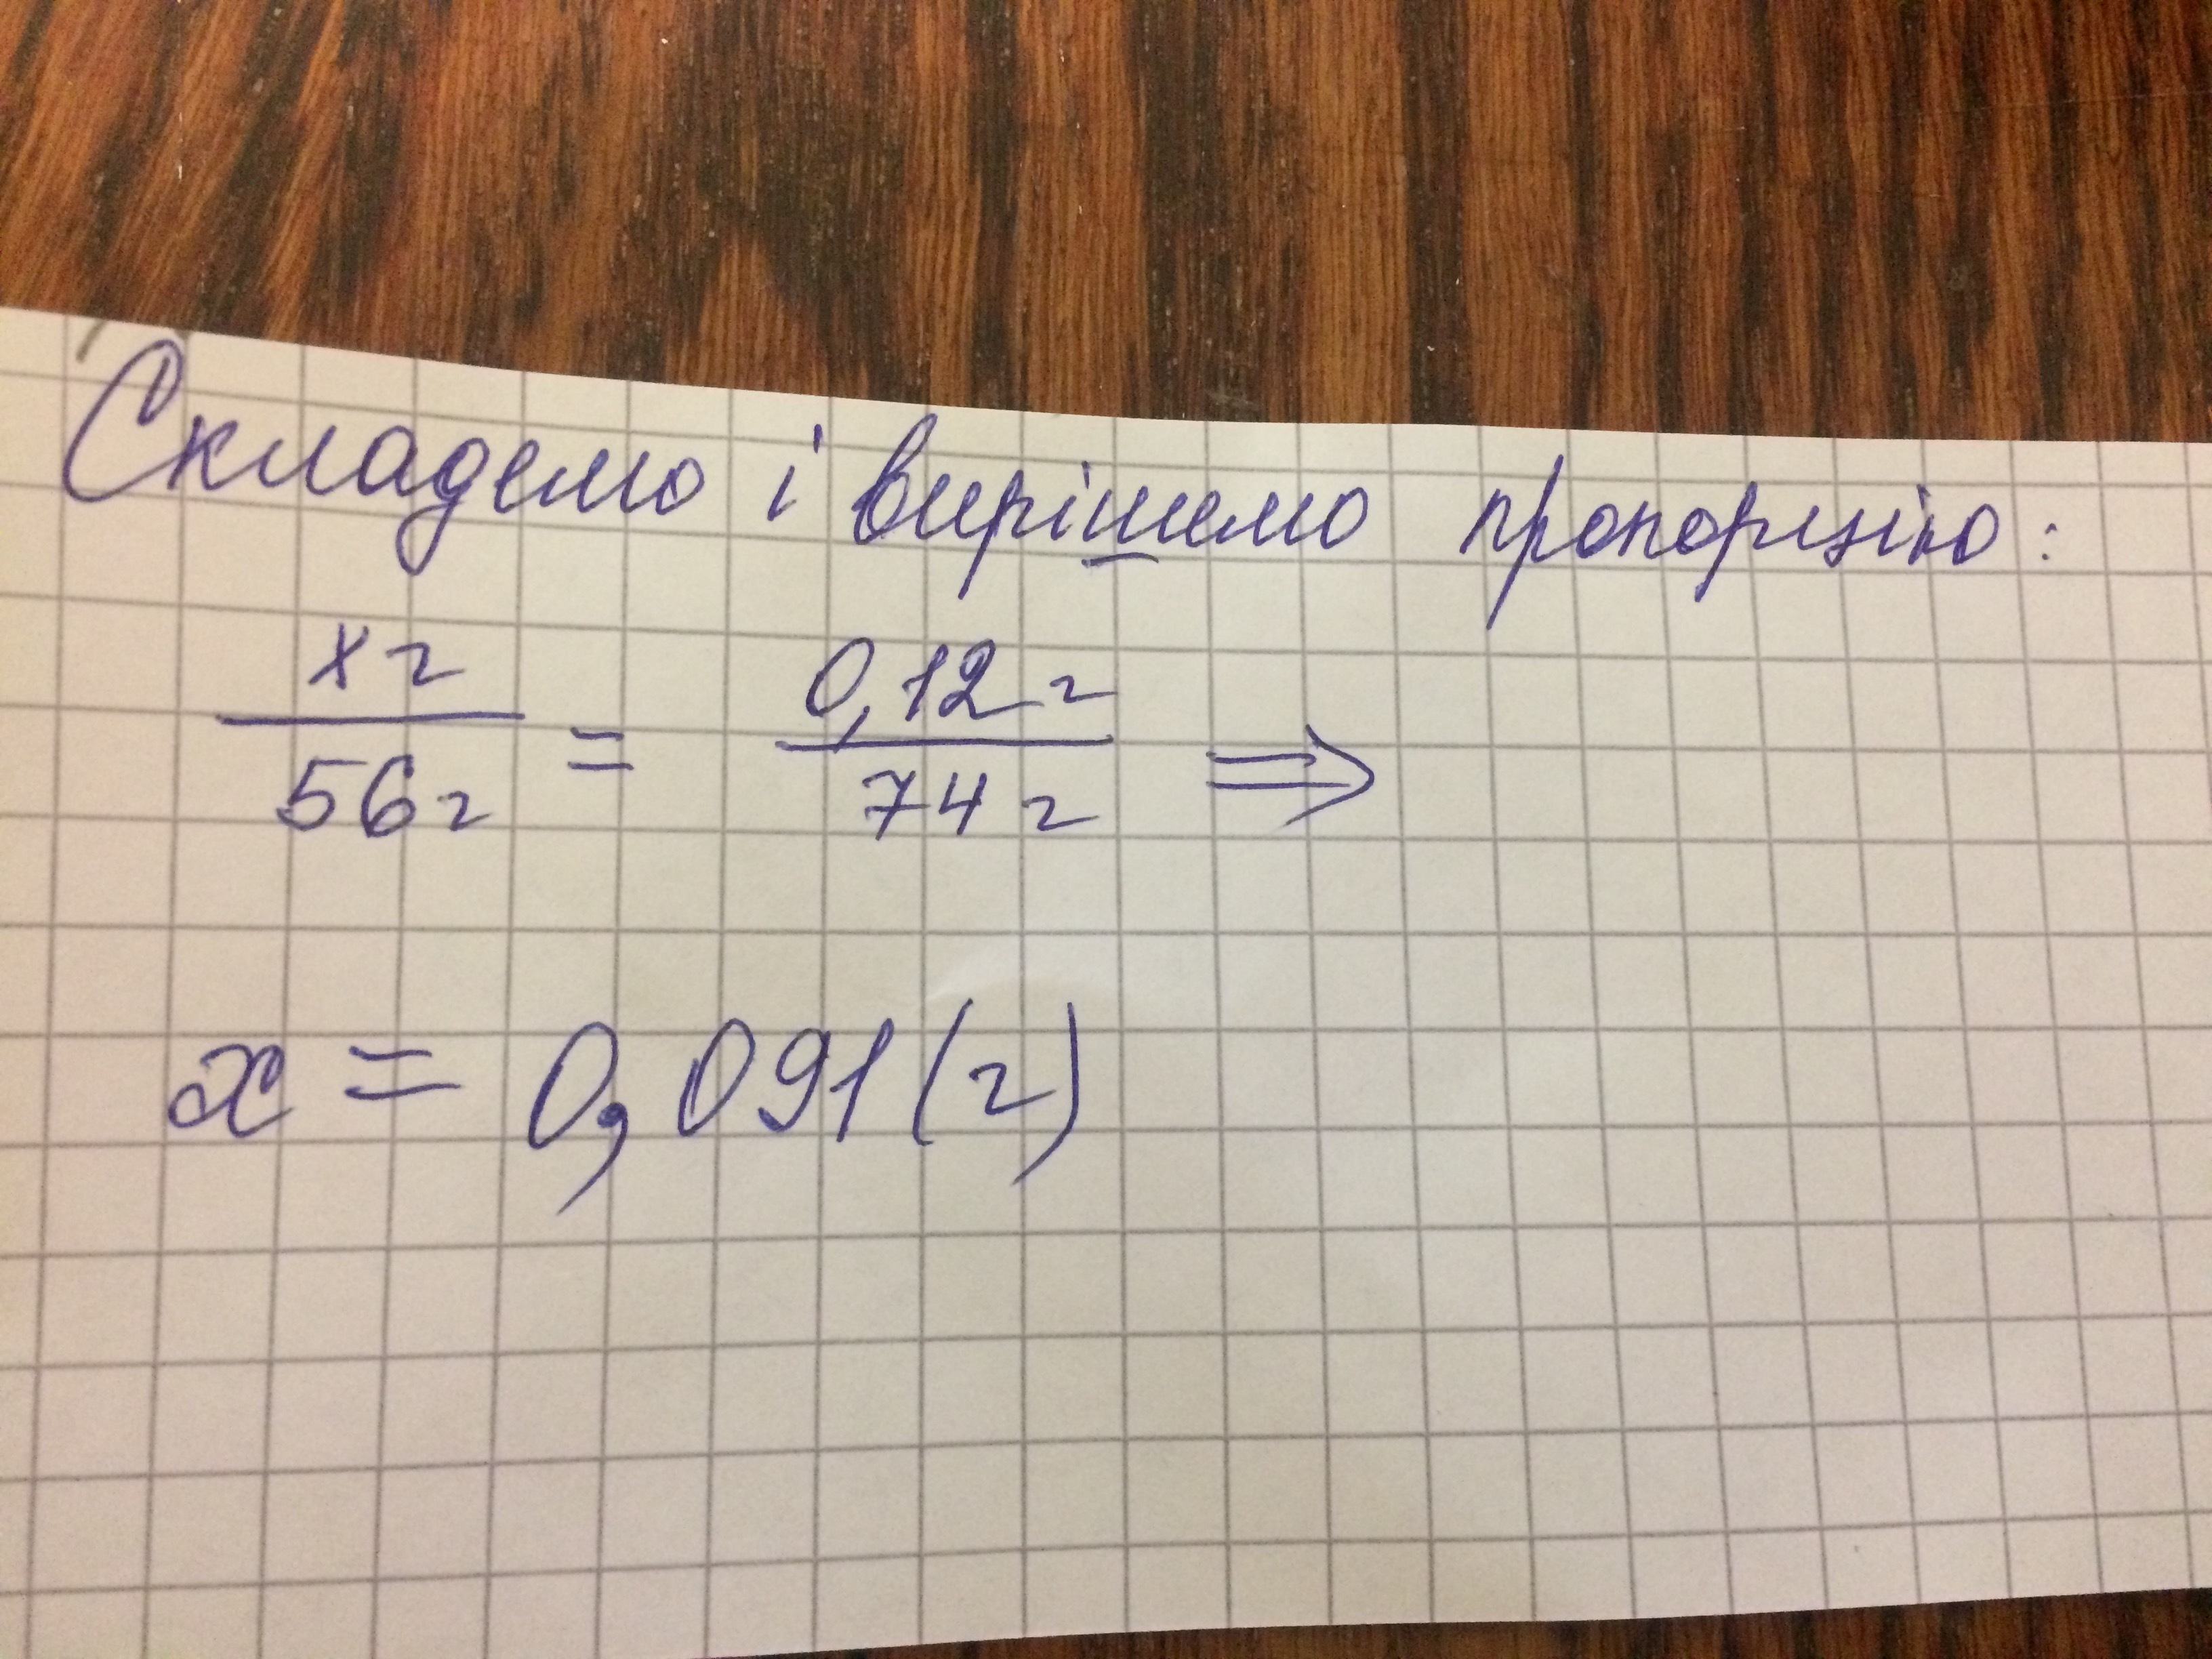 Складемо і вирішемо пропорцію:
x г / 56 г = 0,12 г / 74 г ⇒
x = 0,091 (г)